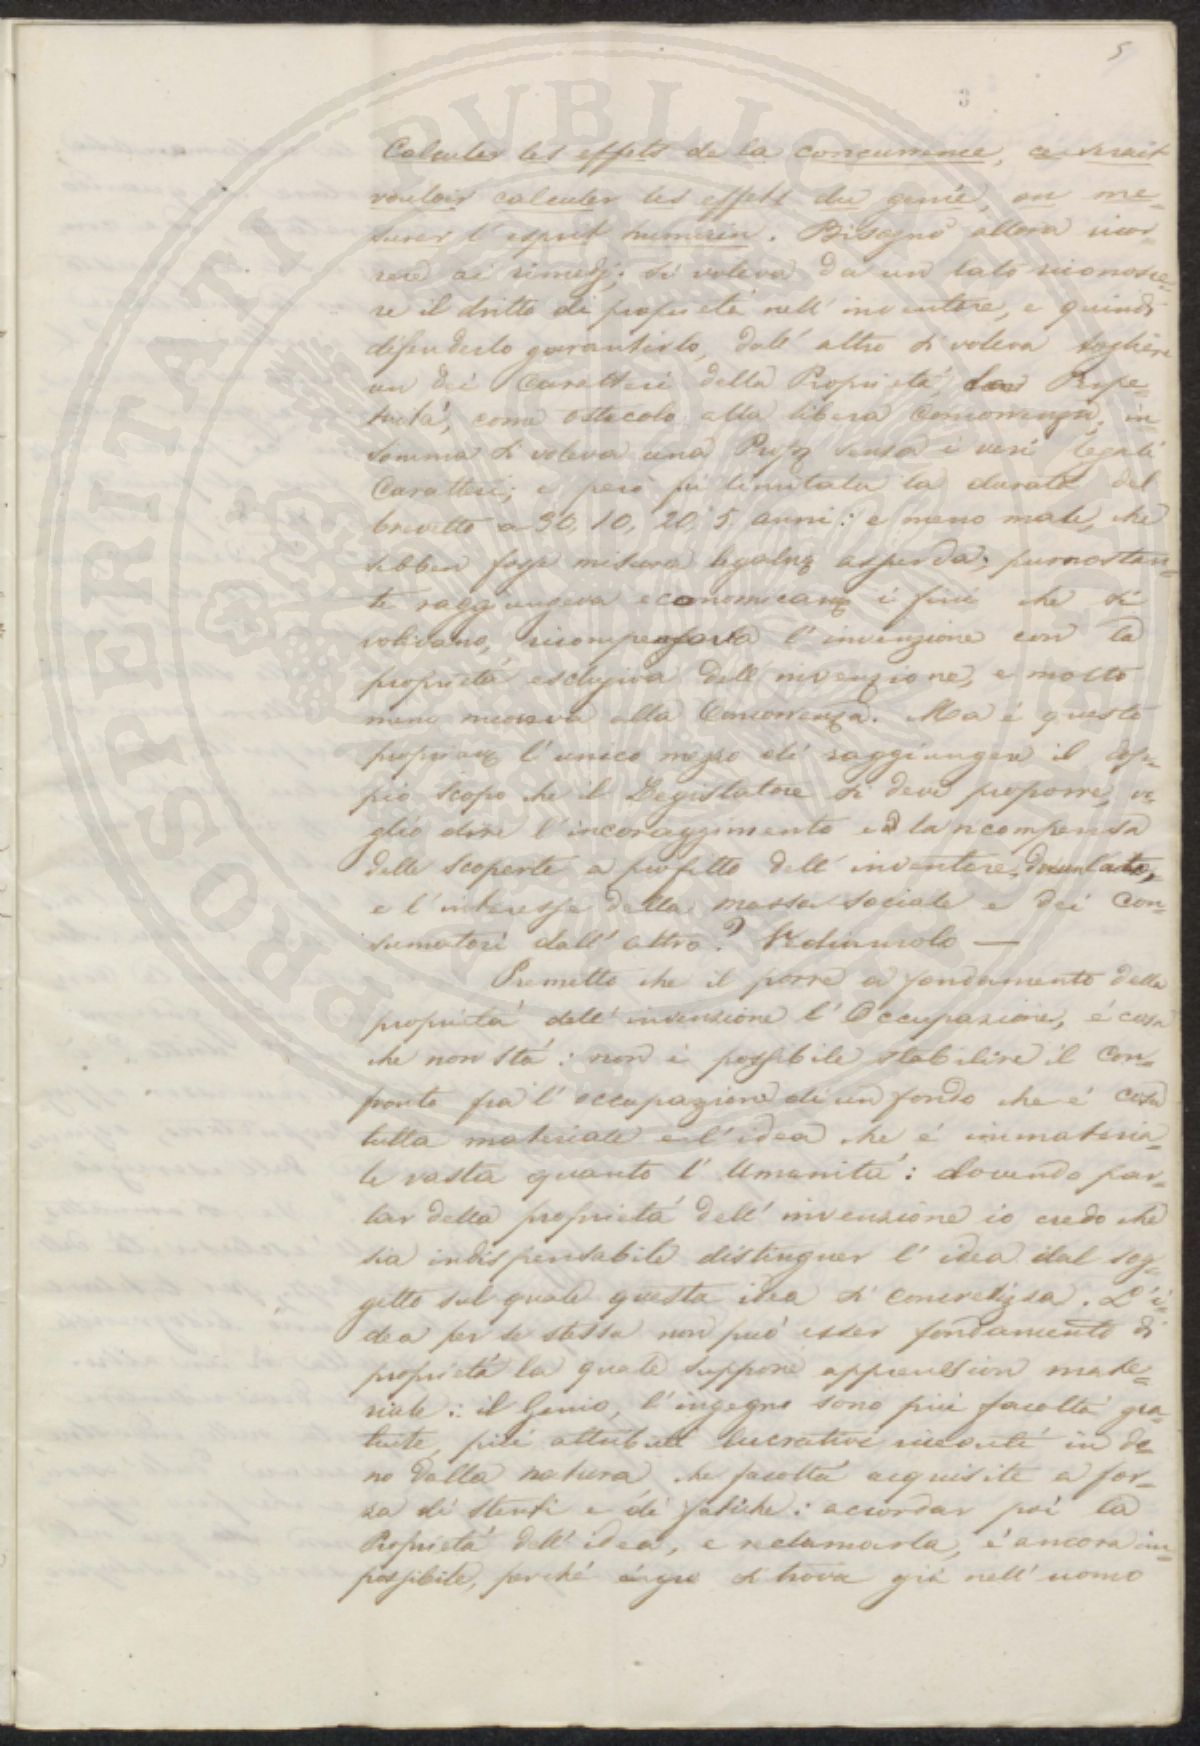 5
3
Calculer les effets de la concurrence, ce serait
vouloir calculer les effets du génie, ou me=
surer l'esprit humain. Bisognò allora ricor=
rere ai rimedj; si voleva da un lato riconosce=
re il dritto di proprietà nell'inventore, e quindi
difenderlo garantirlo, dall'altro si voleva togliere
un dei Caratteri della Proprietà, la Perpe=
tuità, come ostacolo alla libera Concorrenza, in=
somma si voleva una senza i veri legali
Caratteri; e però fu limitata la durata del
brevetto a 30, 10, 20, 5 anni: e meno male, che
sebben fosse misura assurda, purnonostan=
te raggiungeva i fini che si
volevano, ricompensava l'invenzione con la
proprietà esclusiva dell'invenzione, e molto
meno nuoceva alla Concorrenza. Ma è questo
l'unico mezzo di raggiungere il dop=
pio scopo che il Legislatore si deve proporre, vo=
glio dire l'incoraggimento e la ricompensa
delle scoperte a profitto dell'inventore da un lato,
e l'interesse della massa sociale e dei Con=
sumatori dall'altro? Vediamolo —
Premetto che il porre a fondamento della
proprietà dell'invenzione l'Occupazione, è cosa
che non stà: non è possibile stabilire il Con=
fronto fra l'occupazione di un fondo che è cosa
tutta materiale e l'idea che è immateria=
le vasta quanto l'Umanità: dovendo par=
lar della proprietà dell'invenzione io credo che
sia indispensabile distinguer l'idea dal sog=
getto sul quale questa idea si concretizza. L'i=
dea per se stessa non può esser fondamento di
proprietà la quale suppone apprension mate=
riale: il Genio, l'ingegno sono più facoltà gra=
tuite, più attributi lucrativi ricevuti in do=
no dalla natura che facoltà acquisite a for=
za di stenti e di fatiche: accordar poi la
Proprietà dell'idea, e reclamarla, è ancora im=
possibile, perchè si trova già nell'uomo